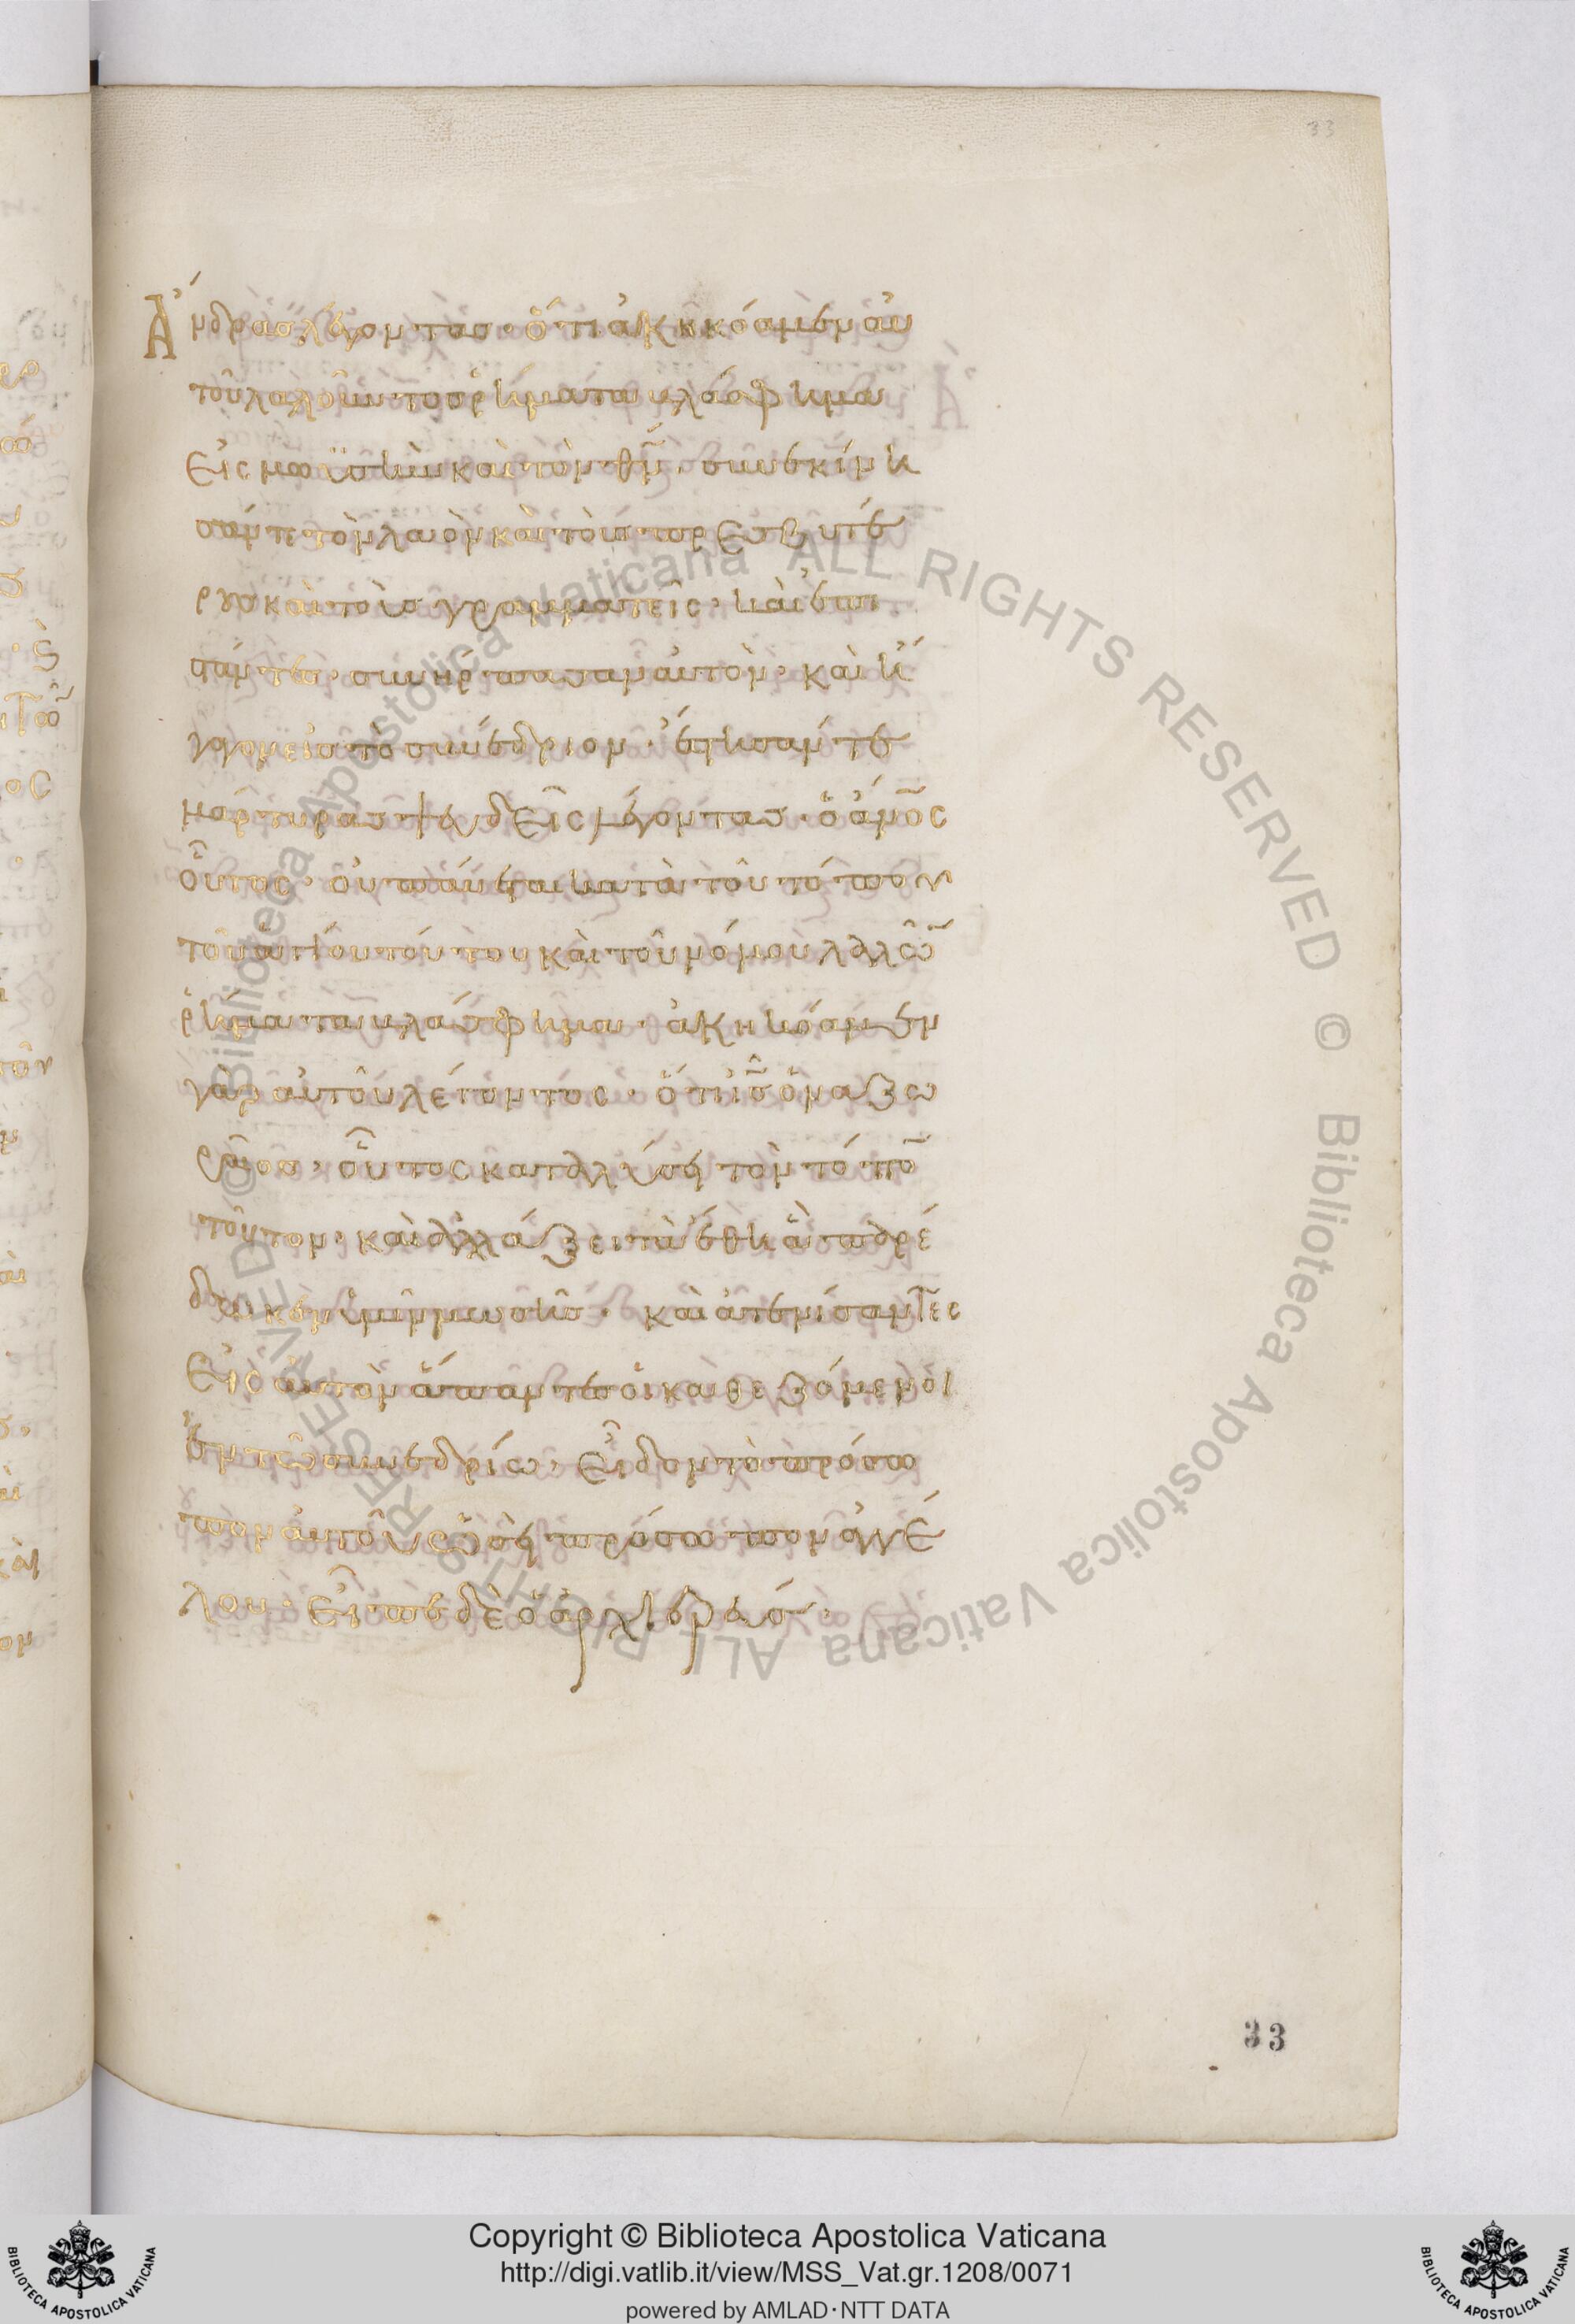 33
Ἄνδρας λέγοντας· ὅτι ἀκηκόαμεν αὐ
τοῦ λαλοῦντος ῥήματα βλάσφημα
εἰς μωϋσῆν καὶ τὸν θν̄· συνεκίνη
σάν τε τὸν λαὸν καὶ τοὺς πρεσβυτέ
ρους καὶ τοὺς γραμματεῖς· καὶ ἐπι
στάντες· συνήρπασαν αὐτὸν· καὶ ἤ
γαγον εἰς τὸ συνέδριον· ἔστησάν τε
μάρτυρας ψευδεῖς λέγοντας· ὁ ἄνος
οὗτος· οὐ παύεται κατὰ τοῦ τόπου
τοῦ ἁγίου τούτου καὶ τοῦ νόμου λαλῶν
ῥήματα βλάσφημα· ἀκηκόαμεν
γὰρ αὐτοῦ λέγοντος· ὅτι ις̄ ὁ ναζω
ραῖος· οὗτος καταλύσει τὸν τόπον
τοῦτον· καὶ ἀλλάξει τὰ ἔθη ἃ παρέ
δωκεν ἡμῖν μωυσῆς· καὶ ἀτενίσαντες
εἰς αὐτὸν ἅπαντες οἱ καθεζόμενοι
ἐν τῷ συνεδρίῳ· εἶδον τὸ πρόσω
πον αὐτοῦ ὡσεὶ πρόσωπον ἀγγέ
λου· εἶπε δὲ ὁ ἀρχιερεύς·
33
Biblioteca Apostolica Vaticana ALL RIGHTS RESERVED © Biblioteca Apostolica Vaticana ALL RIGHTS RESERVED ©
Copyright © Biblioteca Apostolica Vaticana
http://digi.vatlib.it/view/MSS_Vat.gr.1208/0071
powered by AMLAD·NTT DATA
BIBLIOTECA APOSTOLICA VATICANA
BIBLIOTECA APOSTOLICA VATICANA